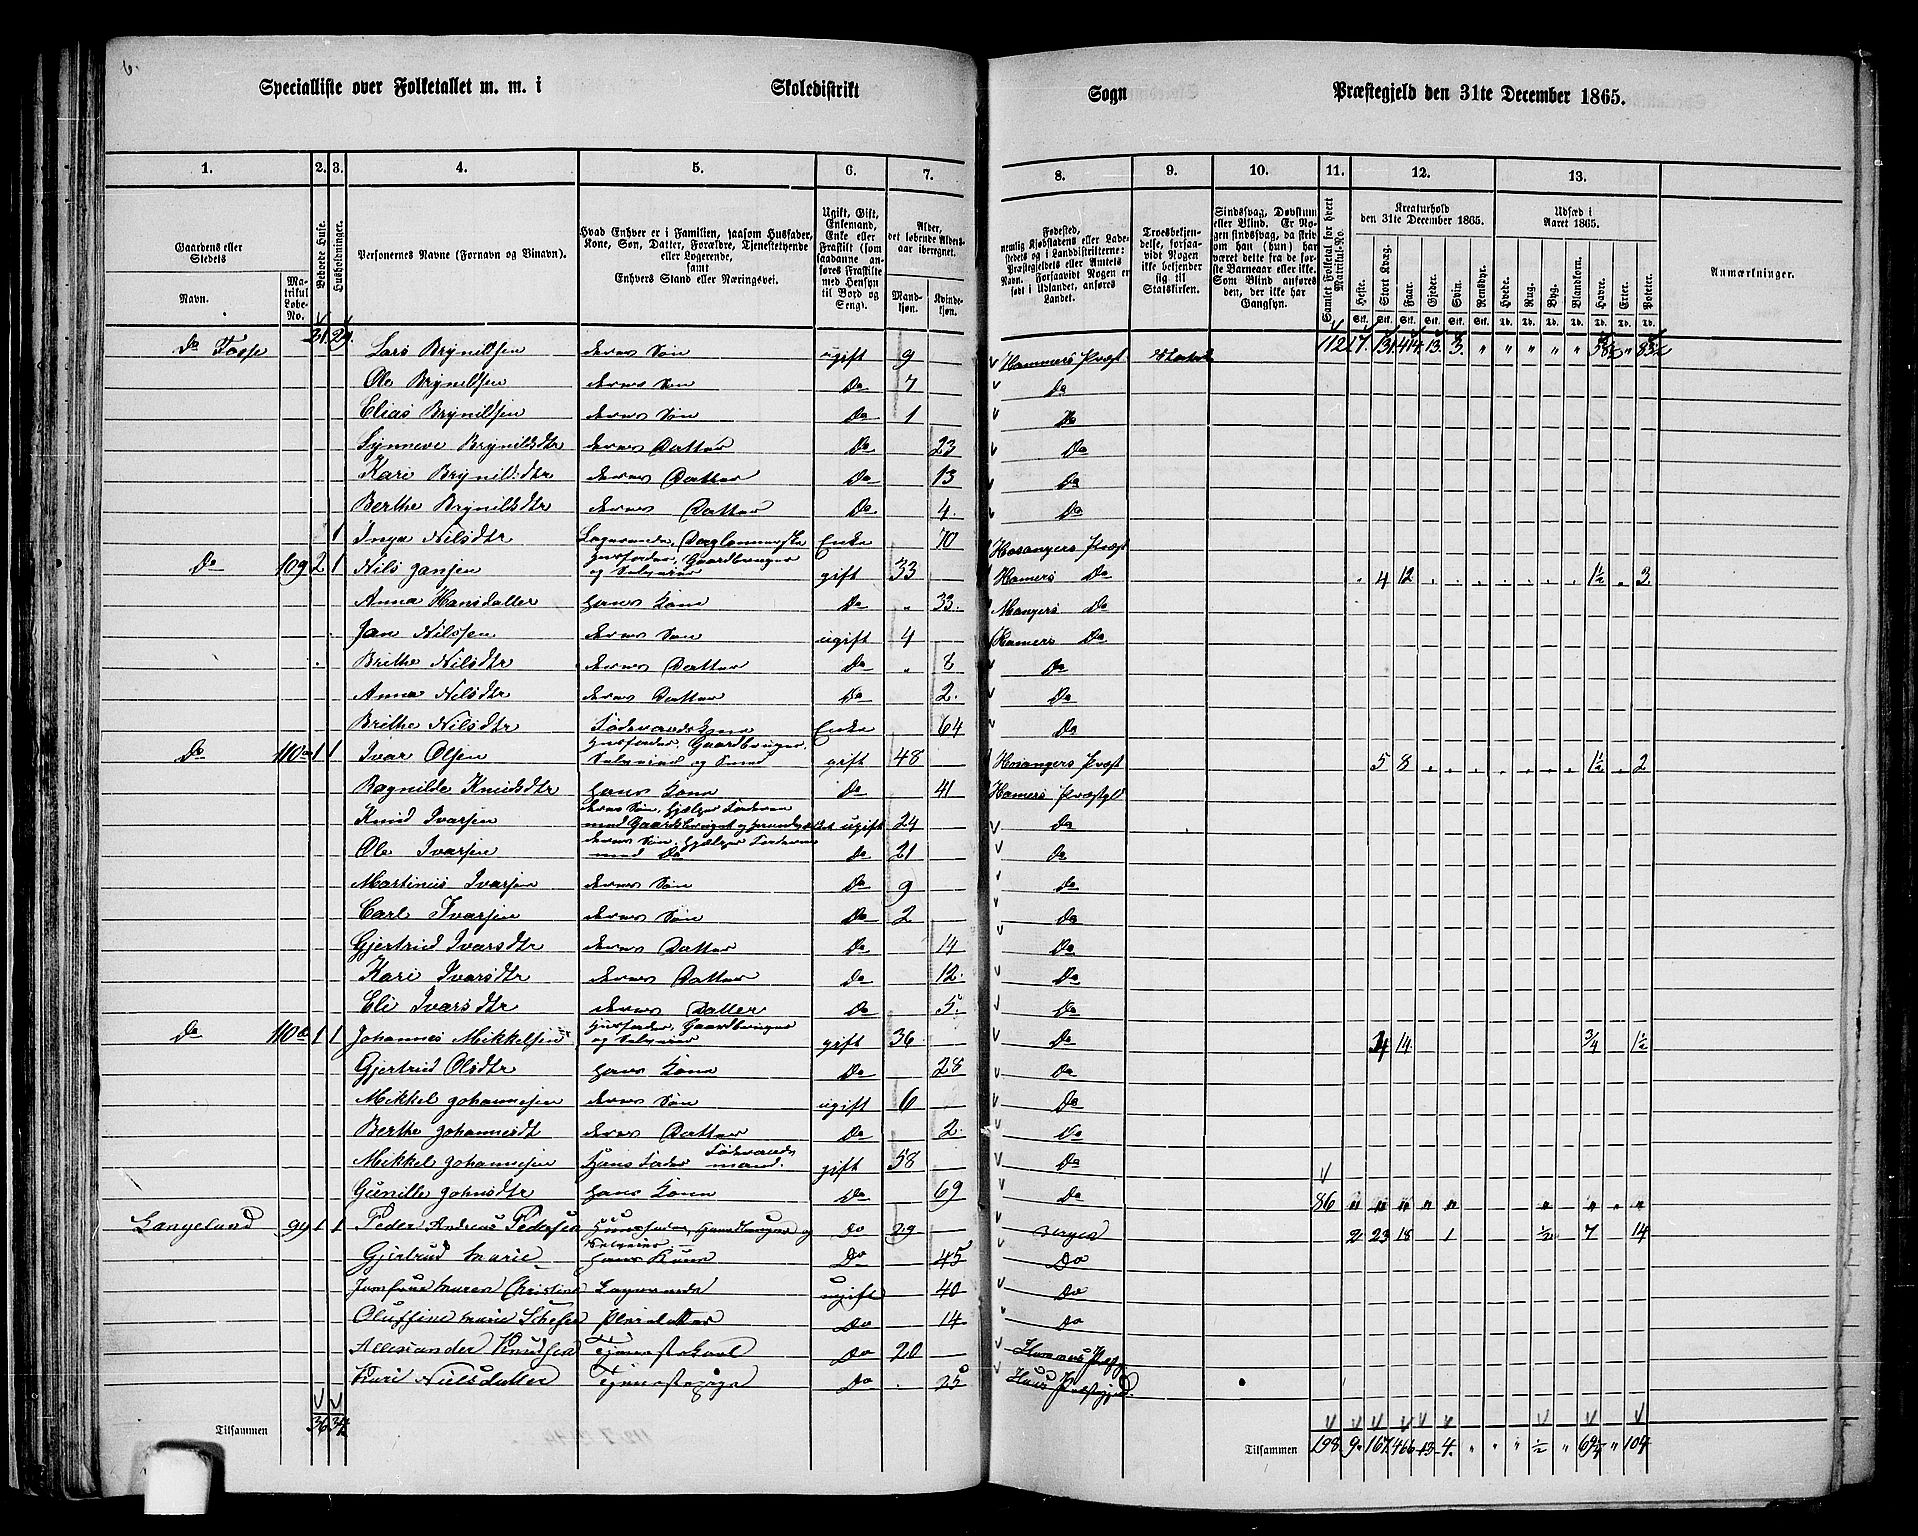 6.
Specialliste over Folketallet m. m. i Skoledistrikt Sogn Præstegjeld den 31te December 1865.
1. 2. 3. 4. 5. 6. 7. 8. 9. 10. 11. 12. 13.
Gaardens eller Stedets Navn. Matrikul Løbe-No. Beboede Huse. Husholdninger. Personernes Navne (Fornavn og Vinavn).
Hvad Enhver er i Familien, saasom Husfader, Kone, Søn, Datter, Forældre, Tjenestetyende eller Logerende, samt Enhvers Stand eller Næringsvei.
Ugift, Gift, Enkemand, Enke eller Fraskilt (som saadanne anføres Fraskilte med Hensyn til Bord og Seng).
Alder, det løbende Aldersaar iberegnet. Mandkjøn. Kvindekjøn.
Troesbekjendelse, forsaavidt Nogen ikke bekjender sig til Statskirken.
Samlet Folketal for hvert Matrikul-No.
Kreaturhold den 31te December 1865. Heste. Stort Kvæg. Faar. Gjeder. Svin. Rensdyr.
Udsæd i Aaret 1865. Hvede. Rug. Byg. Blandkorn. Havre. Erter. Poteter.
Anmærkninger.
Do Fosse 31. 29. Lars Brynildsen deres Søn ugift 9 Hammers Præst
Ole Brynildsen deres Søn Do 7 Do
Elias Brynildsen deres Søn Do 1 Do
Synneve Brynildsdtr deres Datter Do 23 Do
Kari Brynildsdtr deres Datter Do 13 Do
Berthe Brynildsdtr deres Datter Do 4. Do
1 Inga Nilsdtr Logerende, Enke 70 Hosangers Præst
Do 109 2 1 Nils Jansen Husfader, Gaardbruger og Selveier gift 33 Hamers Do 4 12 1½ 3
Anna Hansdatter Hans Kone Do 33. Mangers Do
Jan Nilssen deres Søn ugift 4 Hamers Do
Brithe Nilsdtr deres Datter Do 8 Do
Anna Nilsdtr deres Datter Do 2. Do
Brithe Nilsdtr Føderaadskone Enke 64 Do
Do 110 1 1 Ivar Olsen Husfader, Gaardbruger, Selveier og Smed gift 48 Hosangers Præst 5 8 1½ 2
Ragnilde Knudsdtr Hans Kone Do 41 Hamers Præstgld
Knud Ivarsen deres Søn, hjælper Faderen med Gaardsbruget og ugift 24 Do
Ole Ivarsen deres Søn, hjælper Faderen med Do Do 21 Do
Martinus Ivarsen deres Søn Do 9 Do
Carl Ivarsen deres Søn Do 2 Do
Gjertrud Ivarsdtr deres Datter Do 14 Do
Kari Ivarsdtr deres Datter Do 12. Do
Eli Ivarsdtr deres Datter Do 5. Do
Do 110 1 1 Johannes Mikkelsen Husfader, Gaardbruger og Selveier gift 36 Do 14 ¾ 1½
Gjertrud Olsdtr Hans Kone Do 28 Do
Mikkel Johannesen deres Søn ugift 6 Do
Berthe Johannesdt deres Datter Do 2. Do
Mikkel Johannesen Hans Fader Føderaadsmand. gift 58 Do
Gunille Johnsdtr Hans Kone Do 69 Do 86 " " " " " " " " "
Langeland 99 1 1 Peder Andreas Pedersen Husfader, Gaardbruger og Selveier Do 29 2 23 18 1 ½ 7 14
Gjertrud Marie Hans Kone Do 45 Do
Jomfrue Maren Christine Logerende ugift 40 Do
Oluffine Marie Pleiedatter Do 14 Do
Allexander Knudsen Tjenestekarl Do 20 Hammers Præstg
Kari Nielsdatter Tjenestepige Do 25 Haus Præstegjeld.
Tilsammen 36 34 Tilsammen 198 9 167 466 13 4. " " " ½ " 69¼ " 104